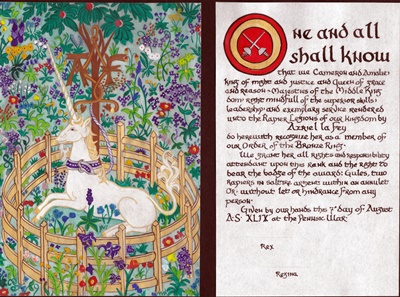 One and all
shall know
that we Cameron and Amalie:
King of might and justice and Queen of grace
and reason - Majesties of the Middle King
dom right mindfull of the superior skills:
leadership and exemplary service rendered
unto the Rapier Legions of our Kingdom by
Azriel la Fey
do herewith recognize her as a member of
our Order of the Bronze Ring.
We grant her all rights and responsibility
attendant upon this rank and the right to
bear the badge of the award: Gules, two
Rapiers in saltire argent within an annulet
Or: without let or hindrance from any
person.
Given by our hands this 7th day of August
A:S: XLIX at the Pennsic War
Rex
Regina